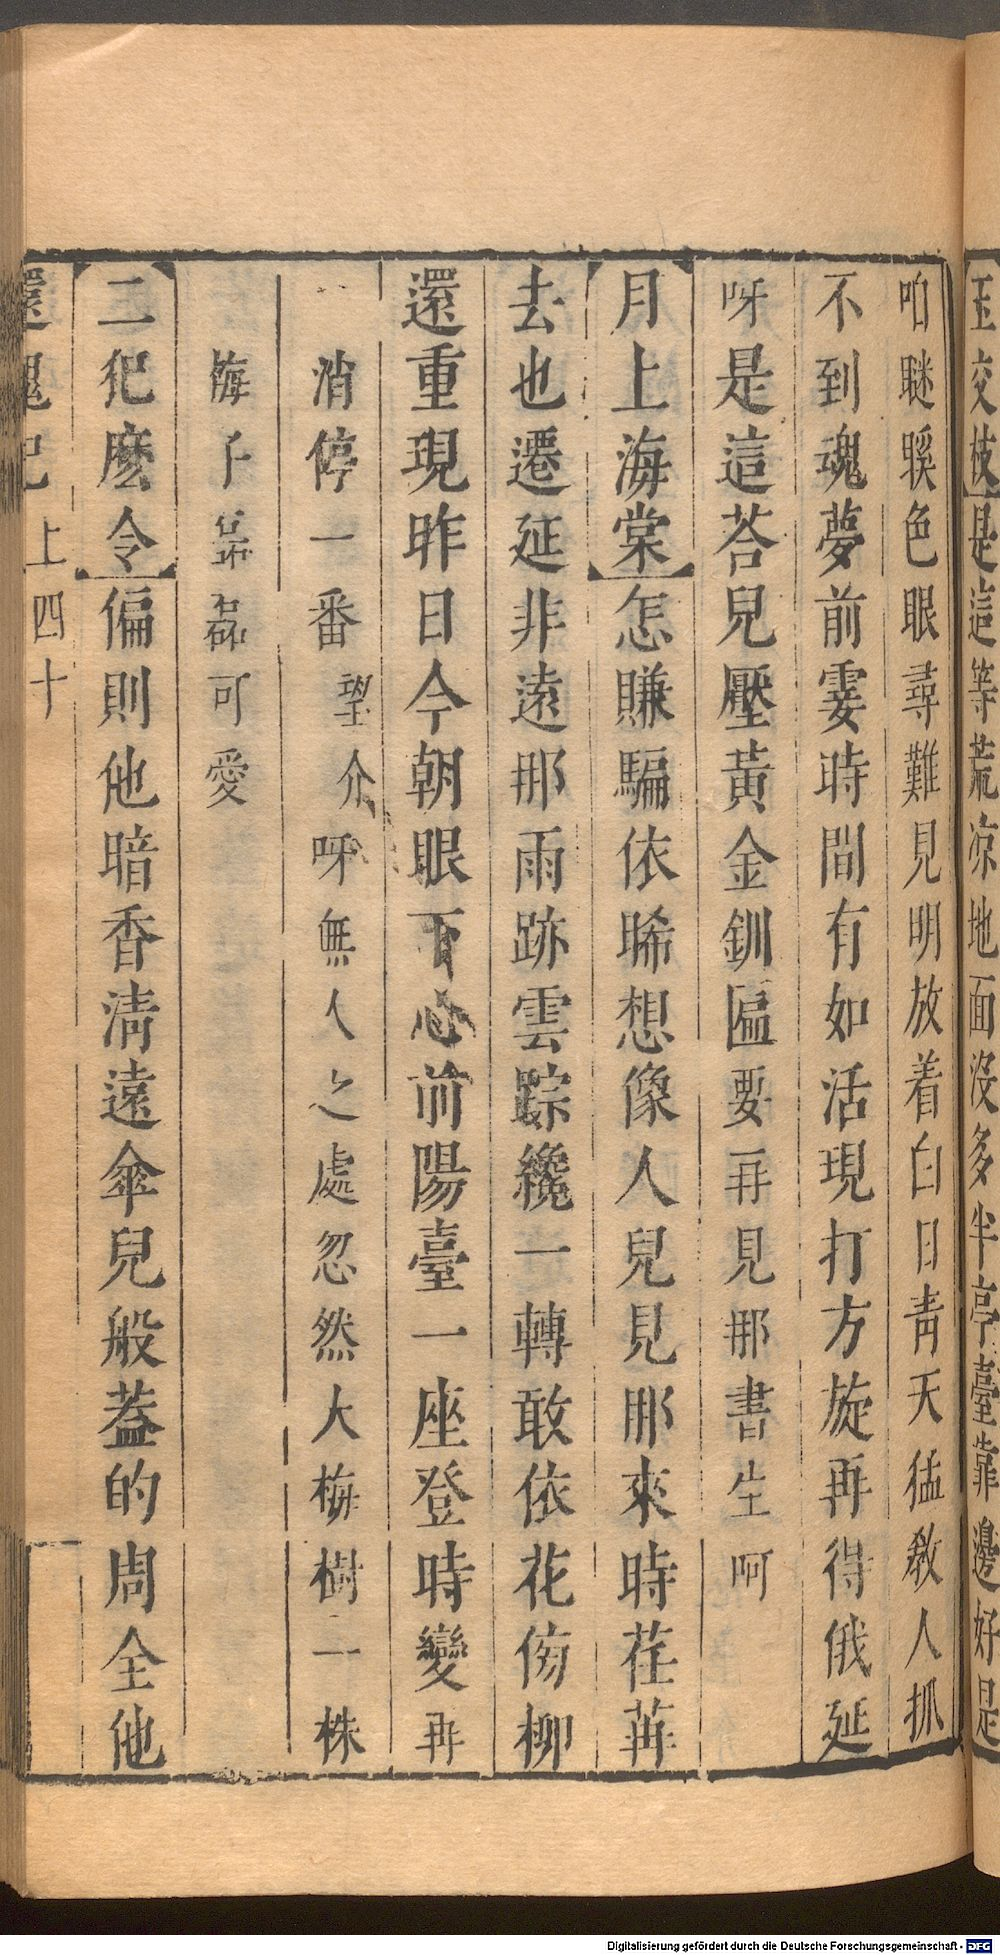 玉交枝是這等荒凉地面沒多半亭臺靠邊好是
咱瞇䁤色眼尋難見明放着白日青天猛教人抓
不到魂夢前霎時間有如活現打方旋再得俄延
呀是這荅兒壓黃金釧匾要再見那書生呵
月上海棠怎賺騙依稀想像人兒見那來時荏苒
去也遷延非遠那雨跡雲踪纔一轉敢依花傍柳
還重現昨日今朝眼下心前陽臺一座登時變再
消停一番望介呀無人之處忽然大梅樹一株
梅子磊磊可愛
二犯麽令偏則他暗香清遠傘兒般葢的周全他
還魂記 上 四十
Digitalisierung gefördert durch die Deutsche Forschungsgemeinschaft - DFG